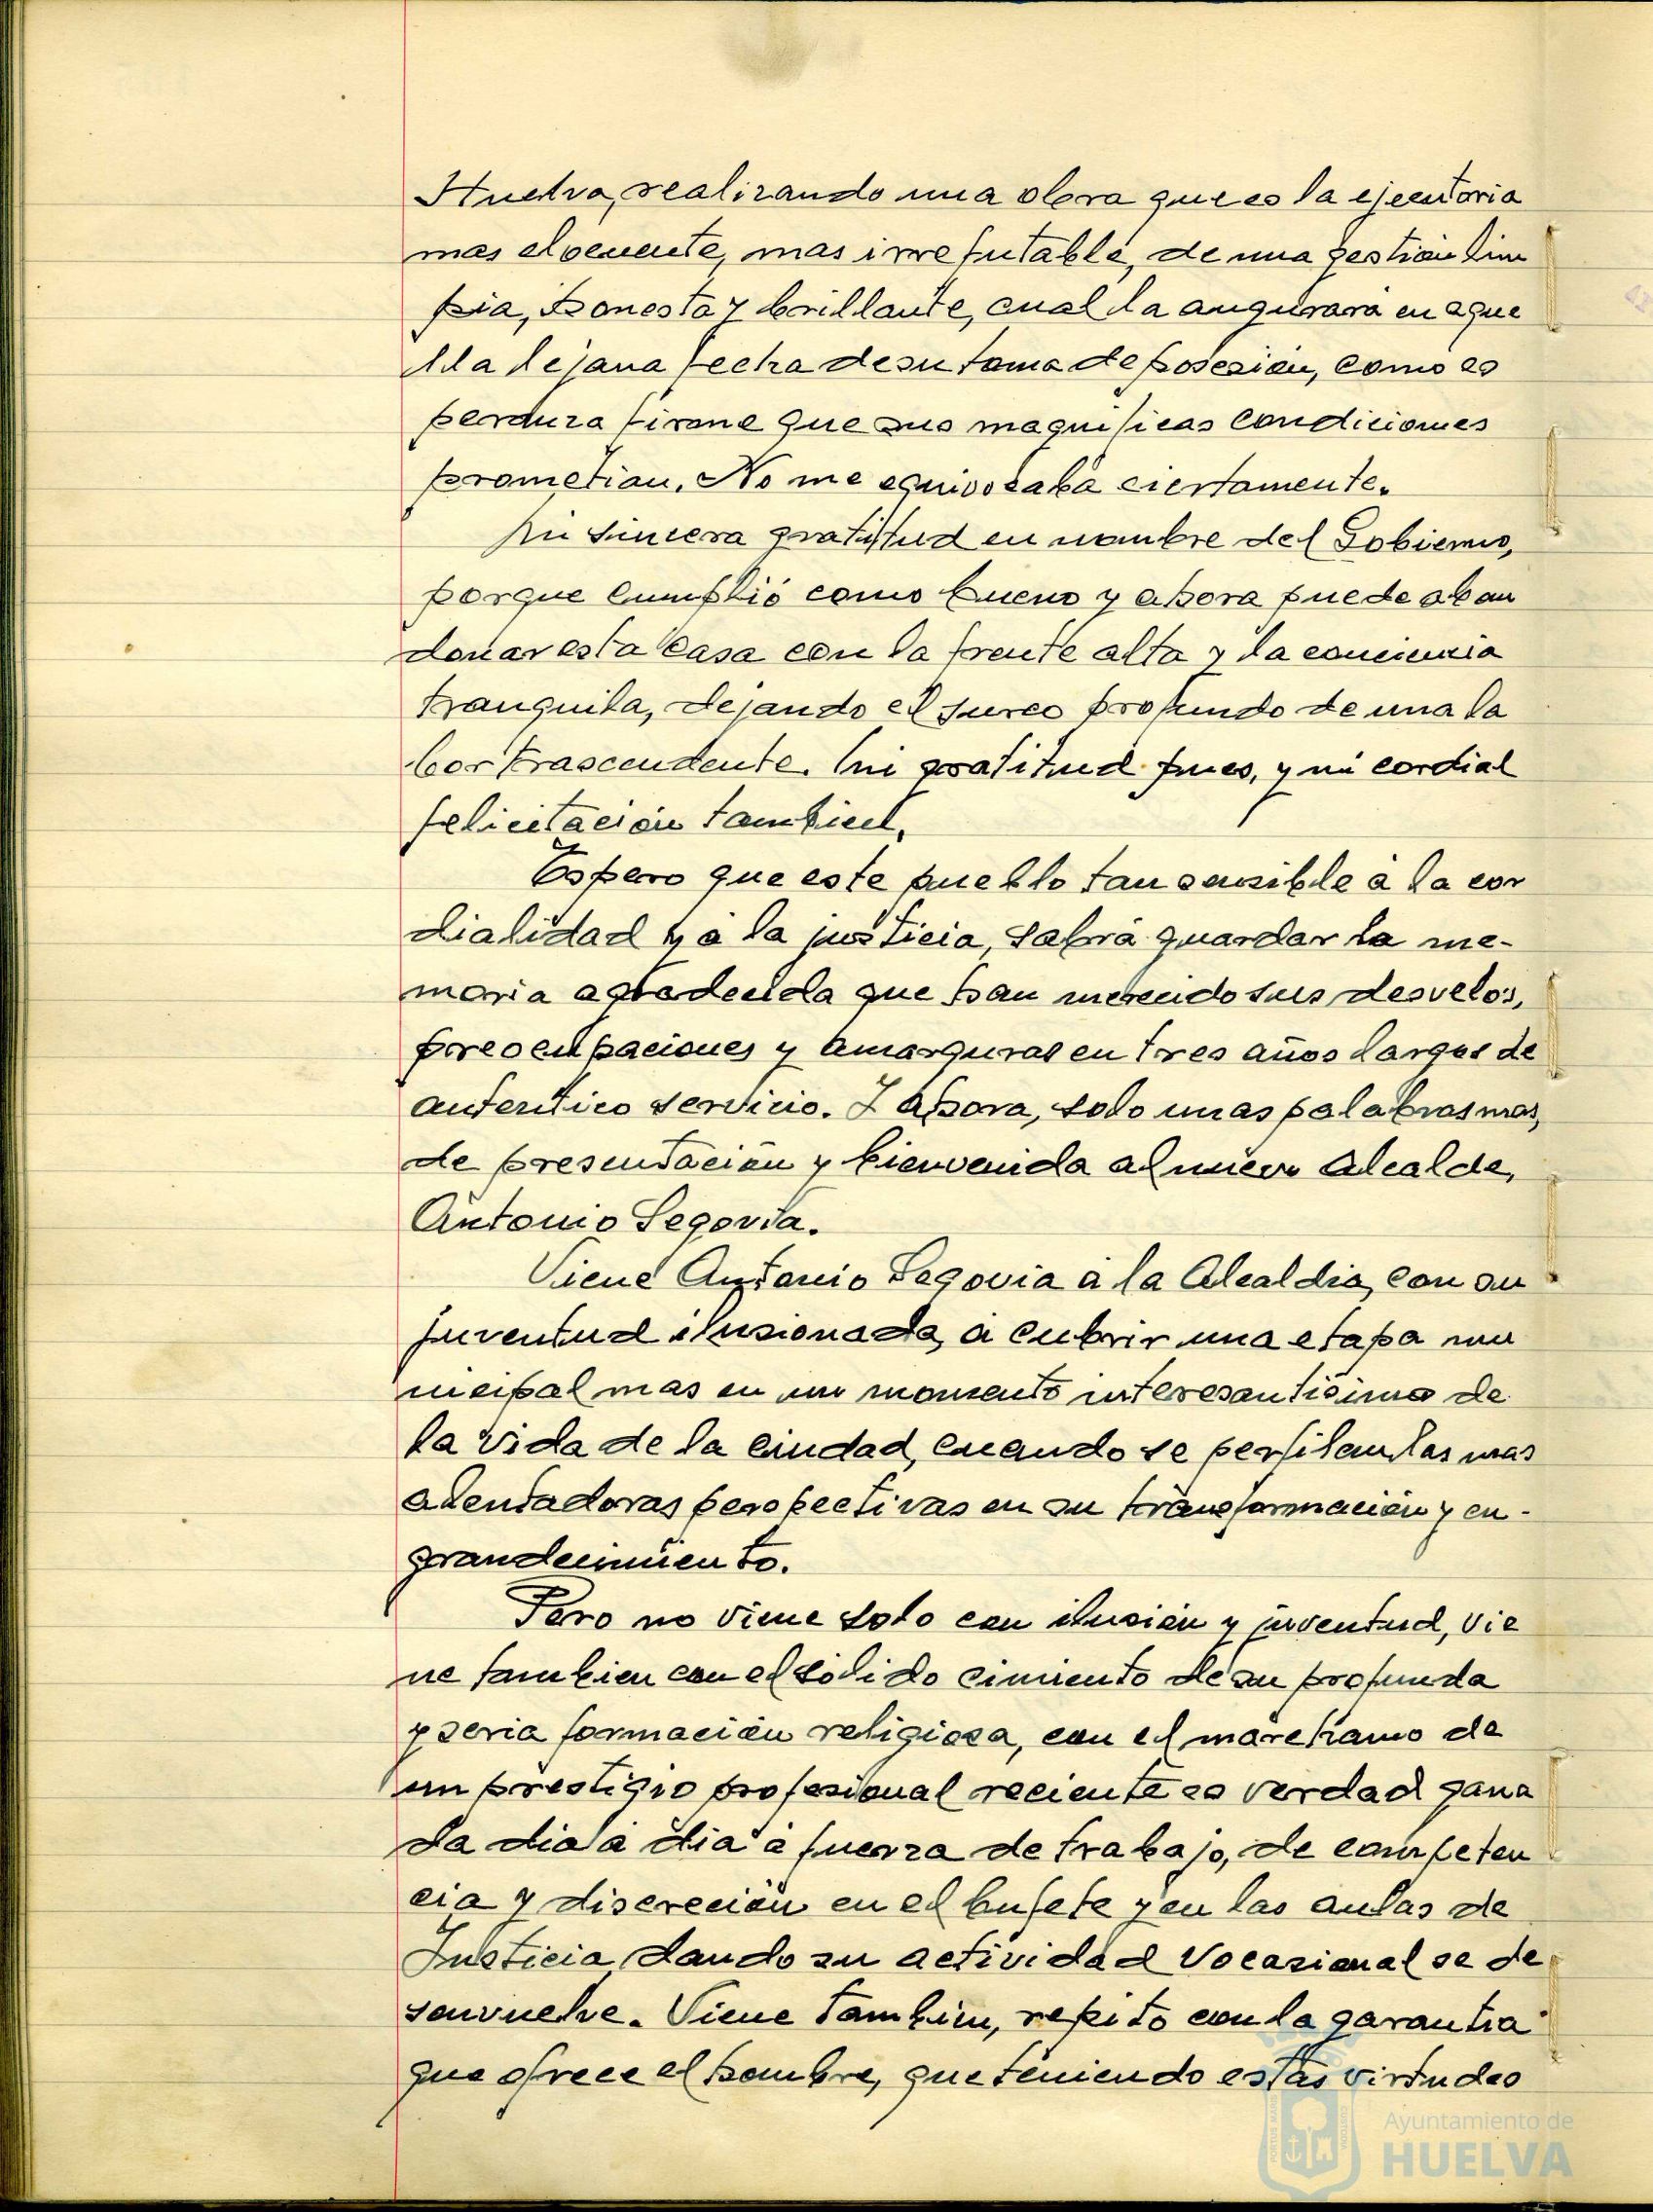 Huelva, realizando una obra que es la ejecutoria
mas elocuente, mas irrefutable, de una gestión lim
pia, honesta y brillante, cual la augurara en aque
lla lejana fecha de su toma de posesión, como es
perduza firme que sus magnificas condiciones
prometian. No me equivocaba ciertamente.
Mi sincera gratitud en nombre del Gobierno,
porque cumplió como bueno y ahora puede aban
donar esta casa con la frente alta y la conciencia
tranquila, dejando el surco profundo de una la
bor trascendente. Mi gratitud pues, y mi cordial
felicitación tambien.
Espero que este pueblo tan sensible á la cor
dialidad y á la justicia, sabrá guardar la me-
moria agradecida que han merecido sus desvelos,
preocupaciones y amarguras en tres años largos de
autentico servicio. Y ahora, solo unas palabras mas,
de presentación y bienvenida al nuevo Alcalde,
Antonio Segovia.
Viene Antonio Segovia á la Alcaldia, con su
juventud ilusionada, á cubrir una etapa mu
nicipal mas en un momento interesantisimo de
la vida de la ciudad, cuando se perfilan las mas
alentadoras perspectivas en su transformación y en-
grandecimiento.
Pero no viene solo con ilusión y juventud, vie
ne tambien con el sólido cimiento de su profunda
y seria formación religiosa, con el marchamo de
un prestigio profesional reciente es verdad gana
da dia á dia á fuerza de trabajo, de competen
cia y discreción en el bufete y en las aulas de
Justicia dando su actividad vocasional se de
senvuelve. Viene tambien, repito con la garantia
que ofrece el hombre, que teniendo estas virtudes
Ayuntamiento de
HUELVA